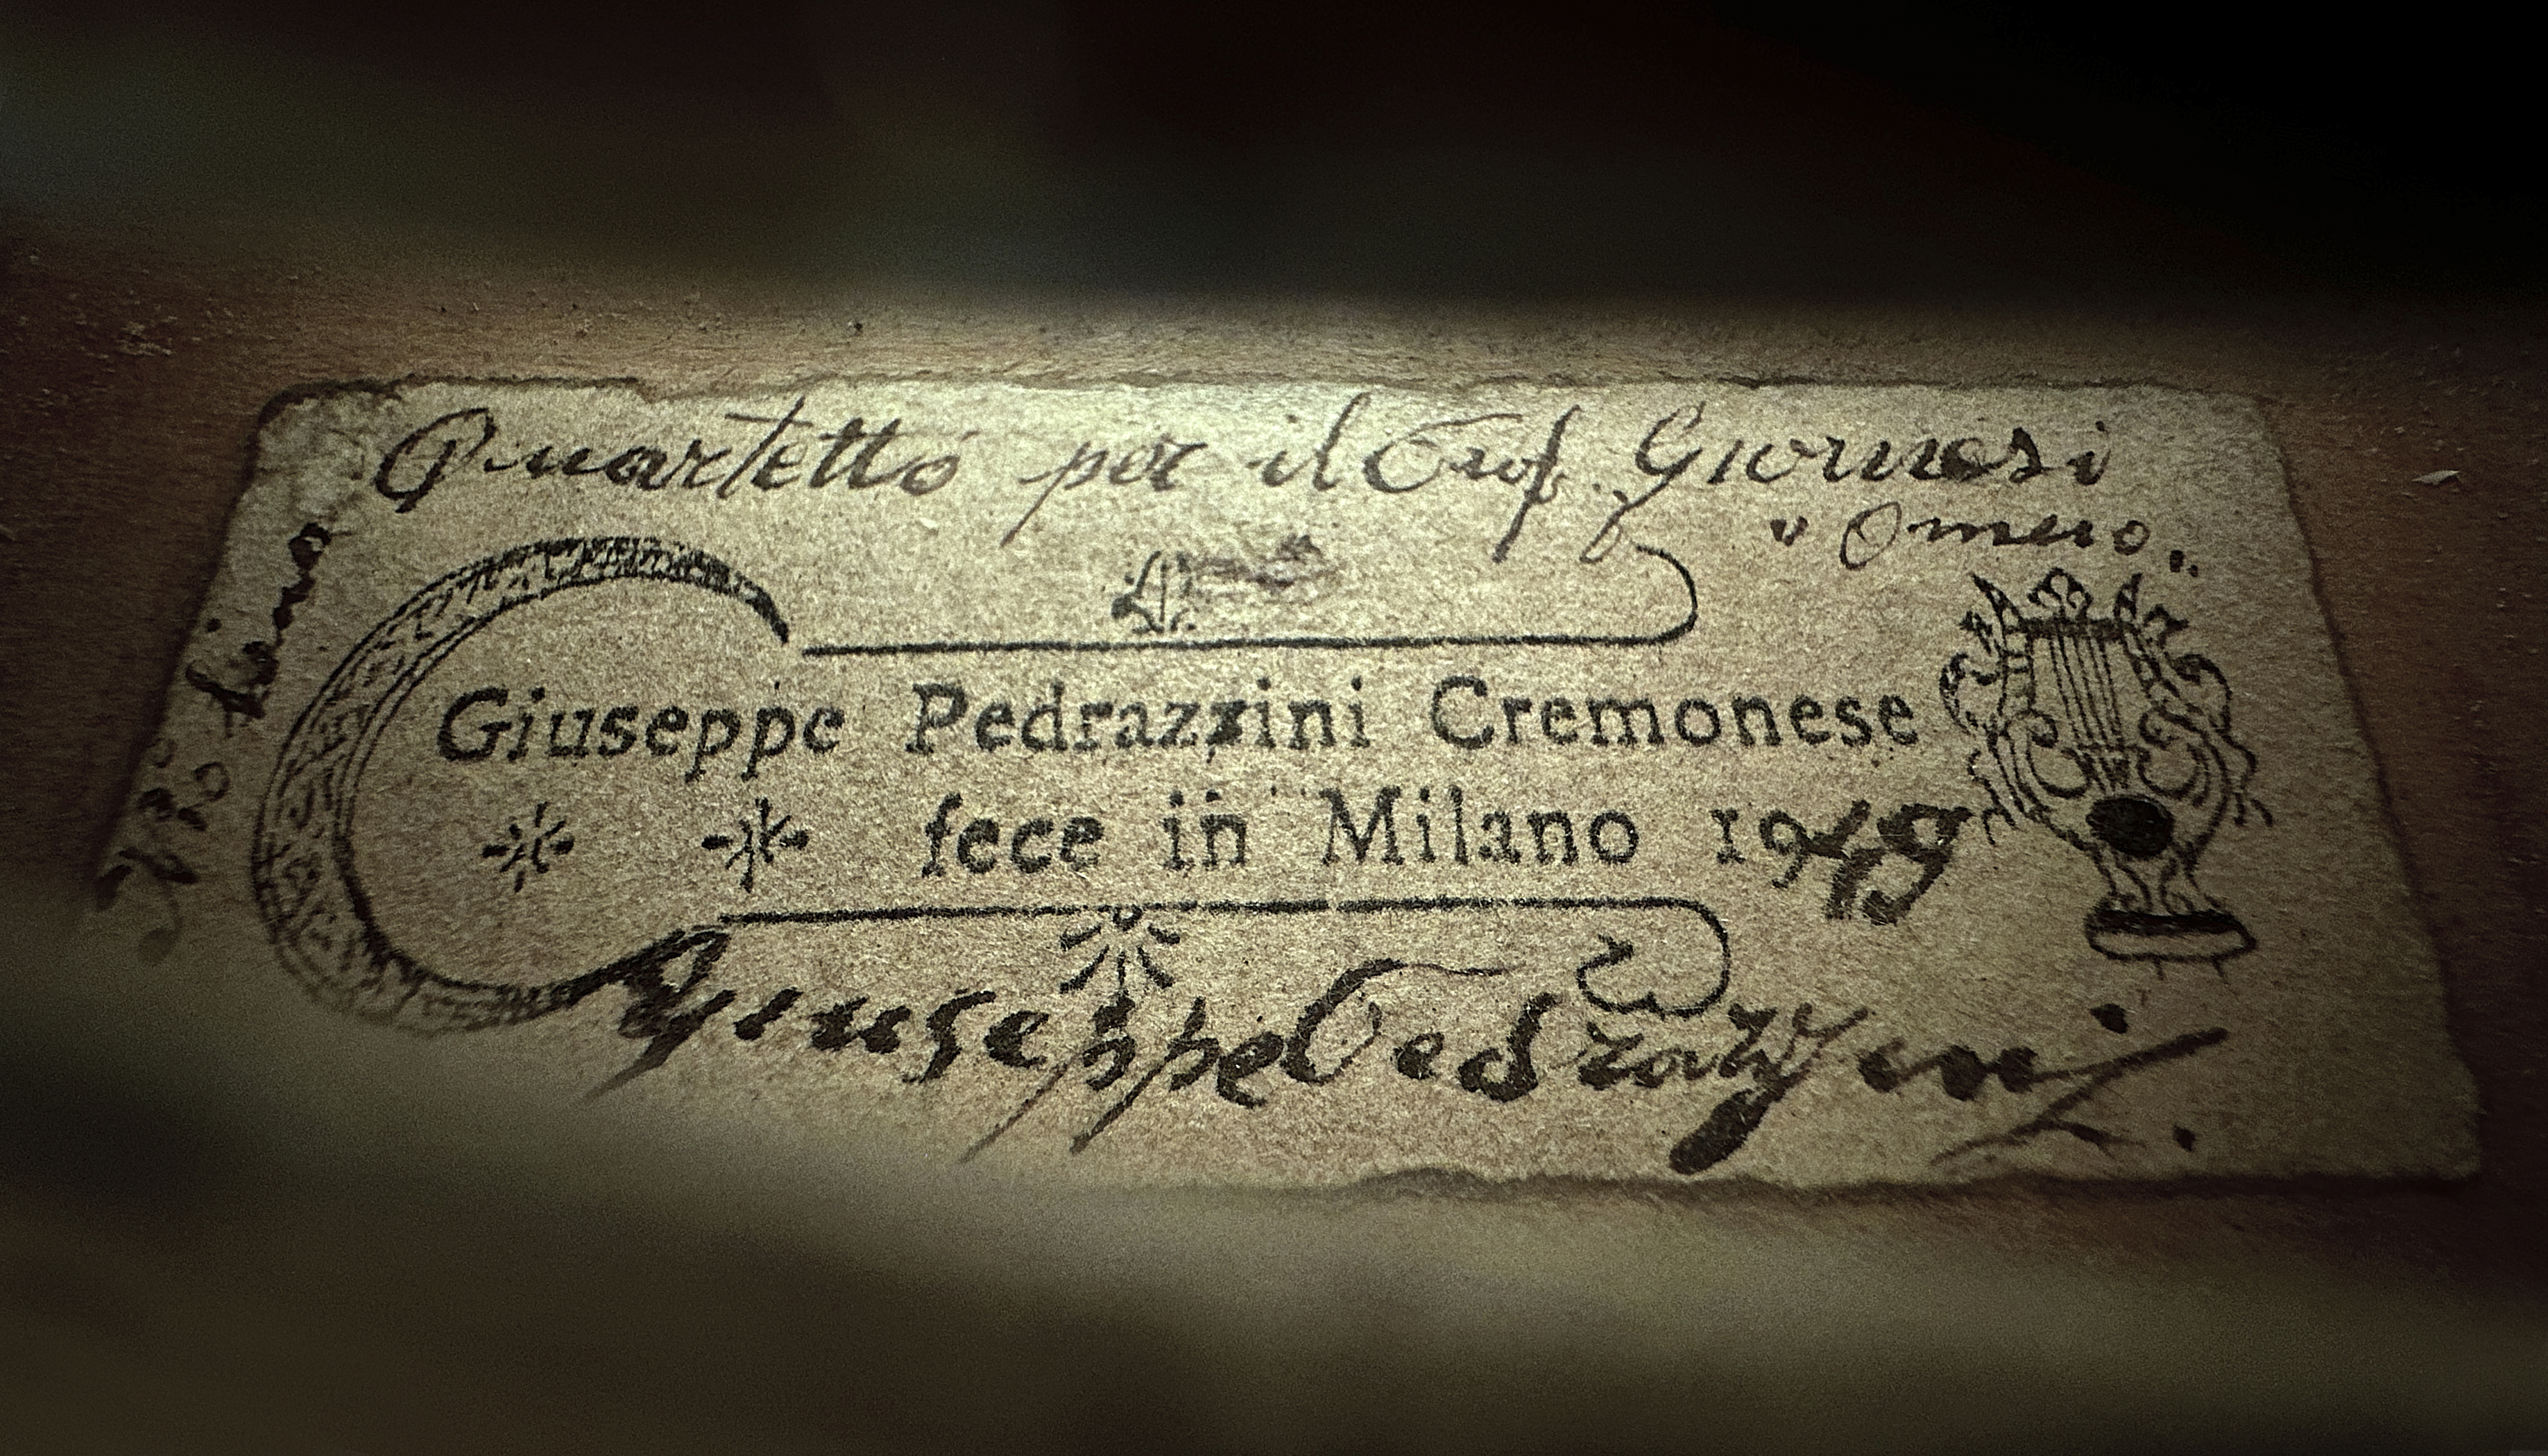 Quartetto per il Prof. Giornesi
"Omero"
Giuseppe Pedrazzini Cremonese
fece in Milano 1949
Giuseppe Pedrazzini